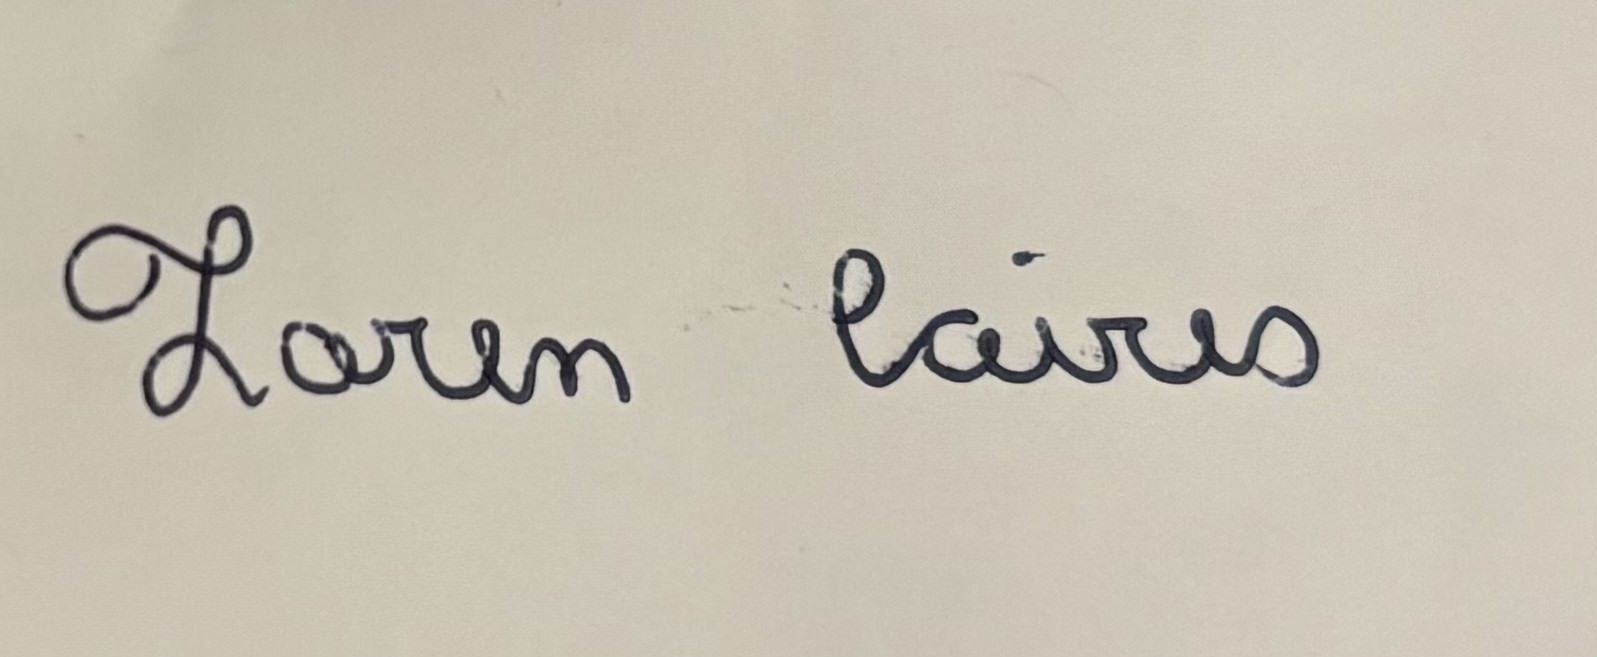 Loren Caires